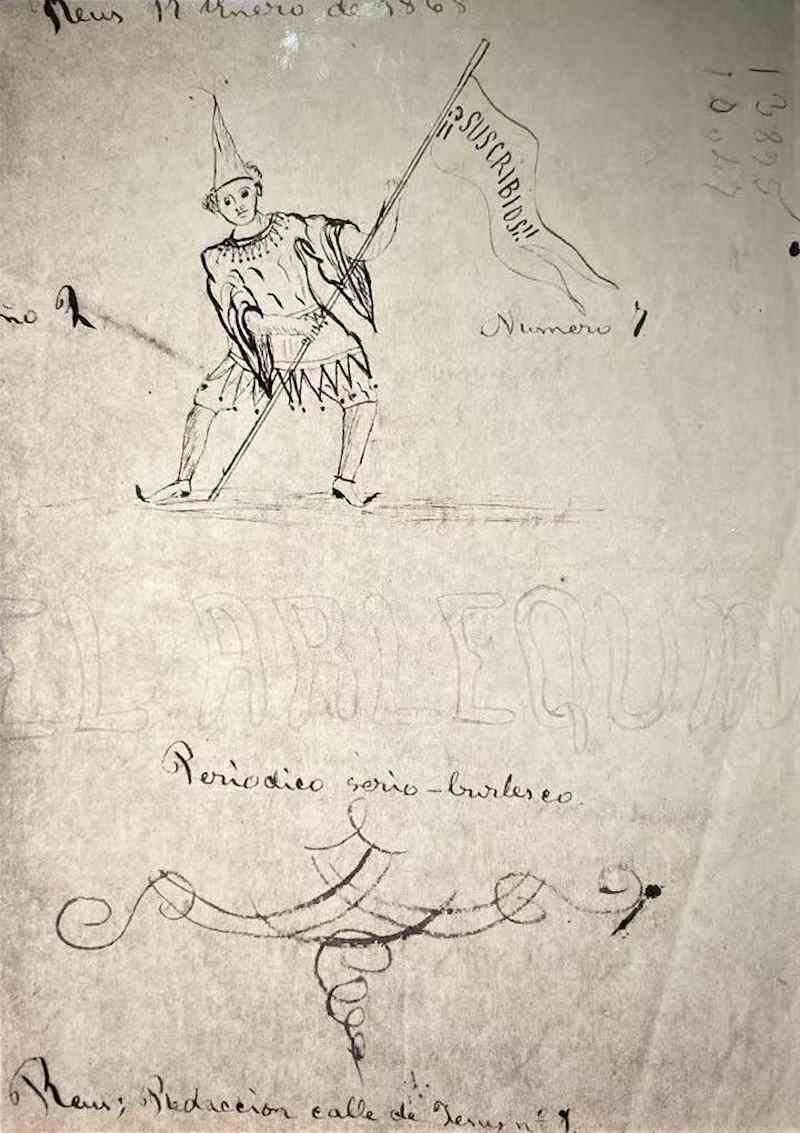 Reus 17 Enero de 1868
¡¡SUSCRIBIOS!!
Numero 7
EL ARLEQUIN
Periodico serio-burlesco.
Reus; Redaccion calle de Jesus nº